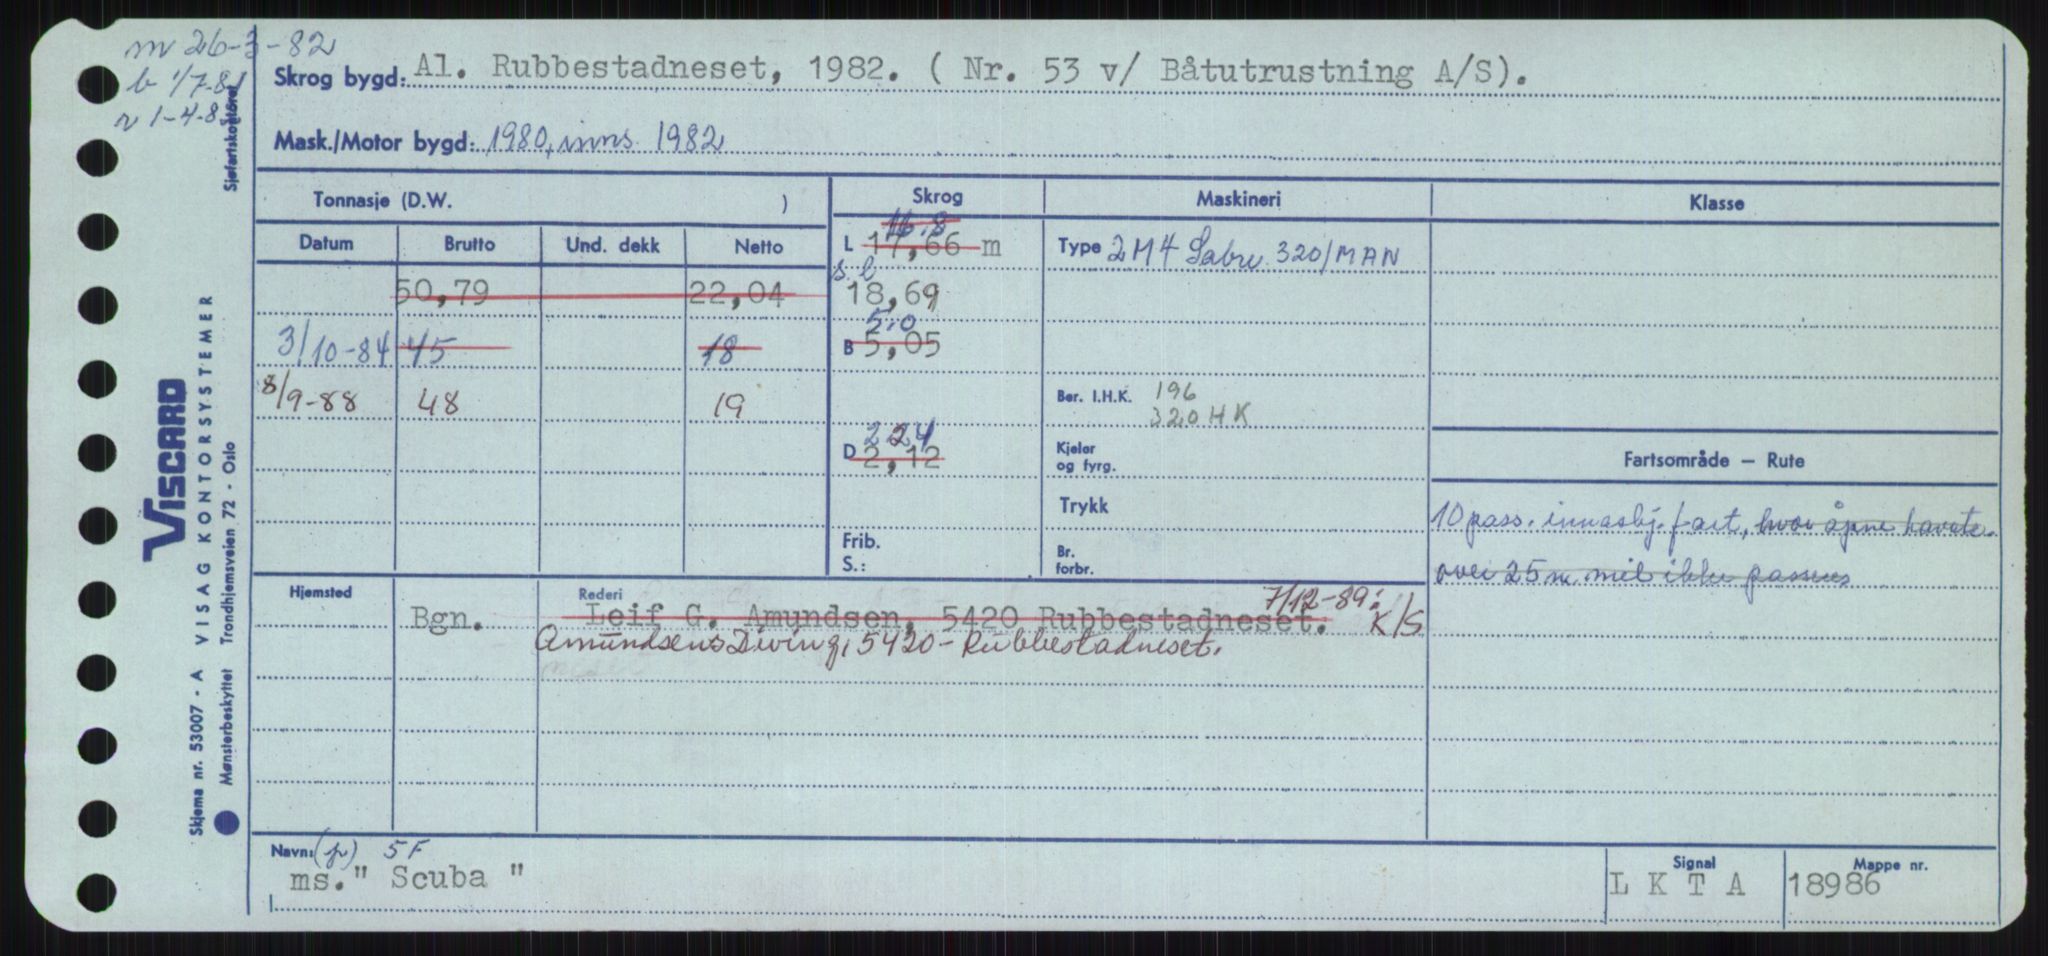 m 26-3-82
b 1/7-81
r 1-4-8
Skrog bygd: Al. Rubbestadneset, 1982. ( Nr. 53 v/ Båtutrustning A/S).
Mask./Motor bygd: 1980, inns. 1982
Sjøfartskontoret
Tonnasje (D.W. )
Skrog
Maskineri
Klasse
Datum Brutto Und. dekk Netto
16.8
L 17,66 m
Type 2M4 Sabre 320/MAN
s.l
50,79 22,04
18,69
5,0
3/10-84 45 18
B 5,05
8/9-88 48 19
Ber. I.H.K. 196
320 HK
2 24
D 2,12
Kjeler
og fyrg.
Fartsområde — Rute
Trykk
10 pass. innasbj. fart, hvor åpne havste.
over 25 n. mil ikke passeres
Frib.
S.:
Br.
forbr.
Hjemsted
Rederi
7/12-89:
Bgn. Leif G. Amundsen, 5420 Rubbestadneset. K/S
Amundsens Diving, 5420 - Rubbestadneset.
Navn: (p) 5F
ms." Scuba "
Signal
L K T A
Mappe nr.
18986
VISCARD
VISAG KONTORSYSTEMER
Skjema nr. 53007 - A
Mønsterbeskyttet Trondhjemsveien 72 - Oslo